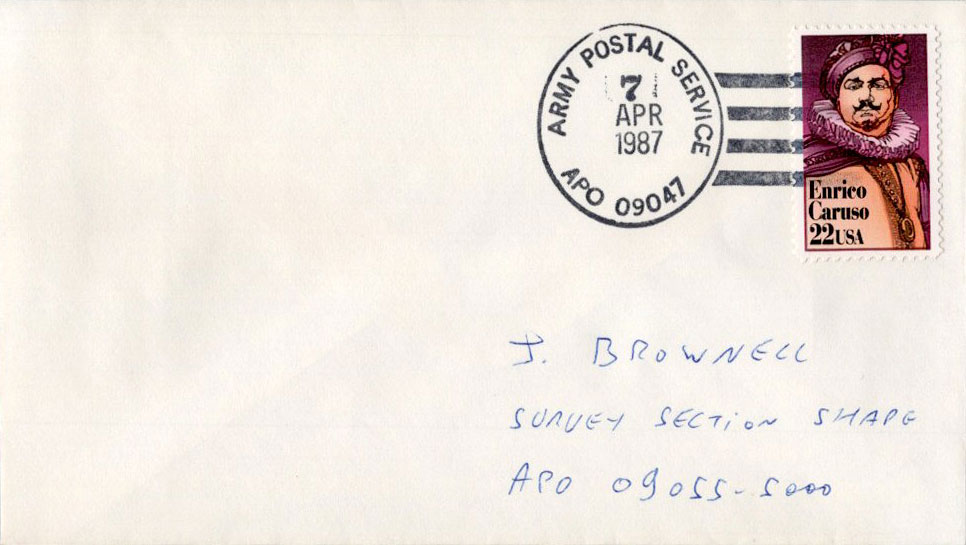 ARMY POSTAL SERVICE
7
APR
1987
APO 09047
Enrico
Caruso
22USA
J. BROWNELL
SURVEY SECTION SHAPE
APO 09055-5000